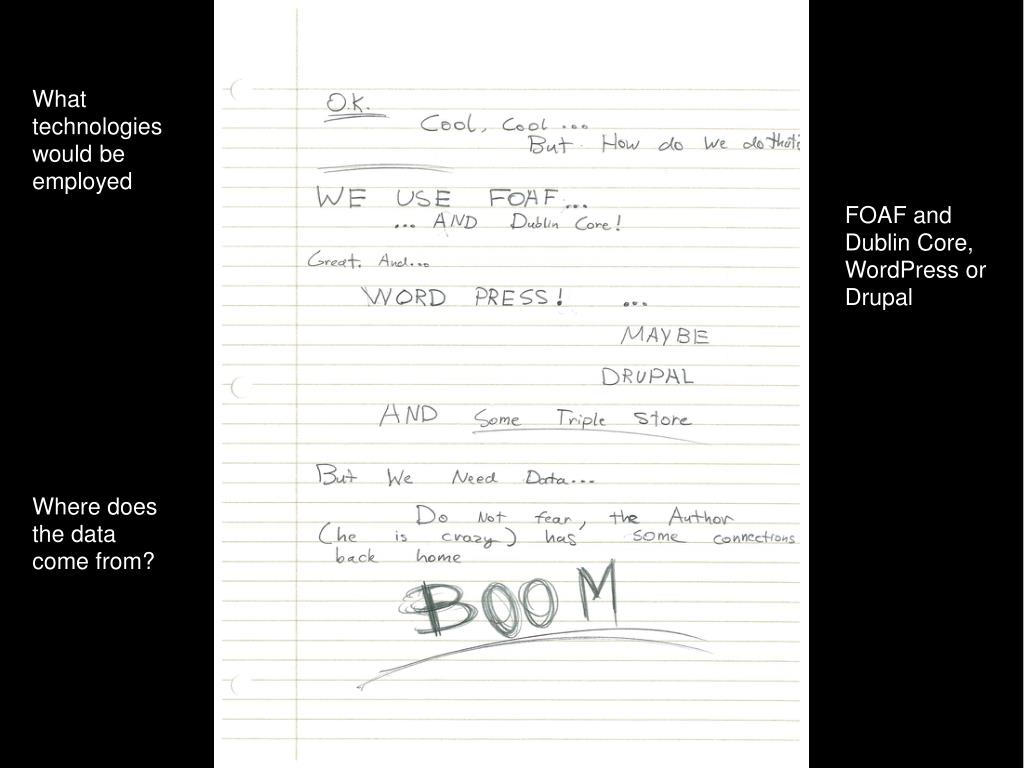 What
technologies
would be
employed
O.K.
Cool, Cool ...
But How do we do that
WE USE FOAF...
... AND Dublin Core!
Great. And...
WORD PRESS! ...
MAYBE
DRUPAL
AND Some Triple Store
But We Need Data...
Do Not fear, the Author
(he is crazy) has some connections
back home
BOOM
Where does
the data
come from?
FOAF and
Dublin Core,
WordPress or
Drupal